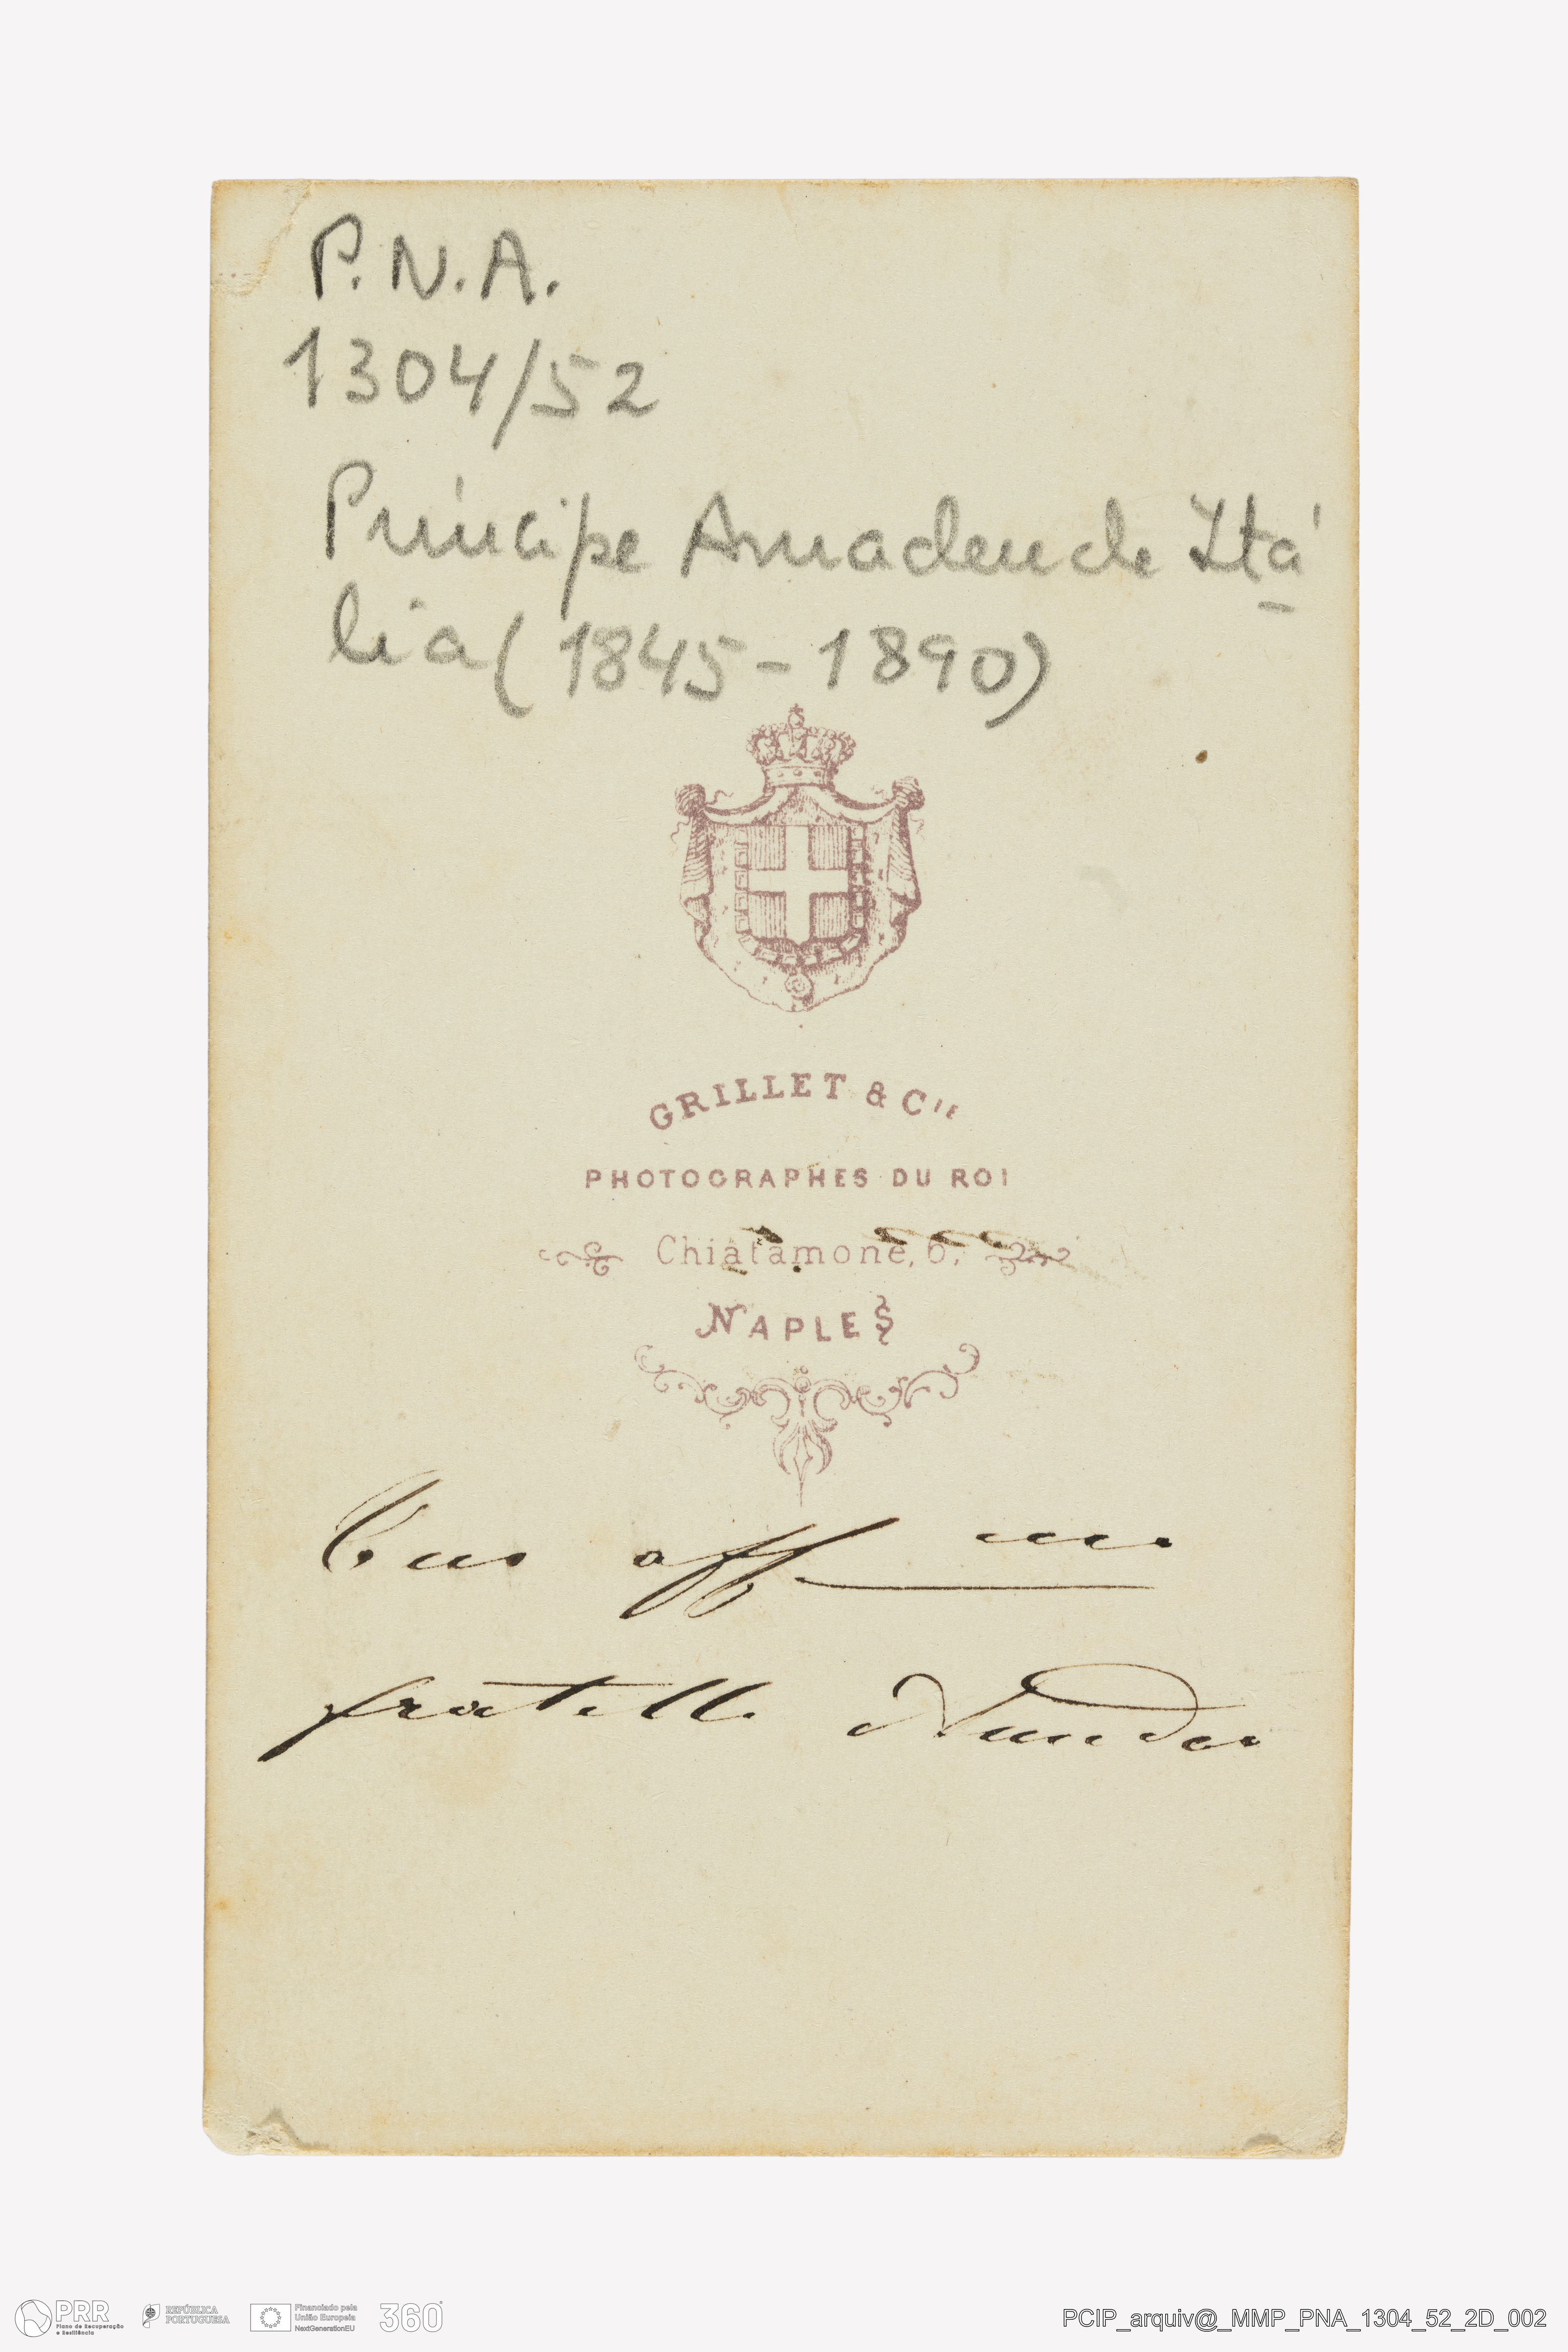 P.N.A.
1304/52
Príncipe Amadeu de Itá
lia (1845-1890)
GRILLET & CIE
PHOTOGRAPHES DU ROI
Chiatamone, 6,
NAPLES
aff mo
fratello
PRR
Plano de Recuperação
e Resiliência
REPÚBLICA
PORTUGUESA
Financiado pela
União Europeia
NextGenerationEU
360°
PCIP_arquiv@_MMP_PNA_1304_52_2D_002